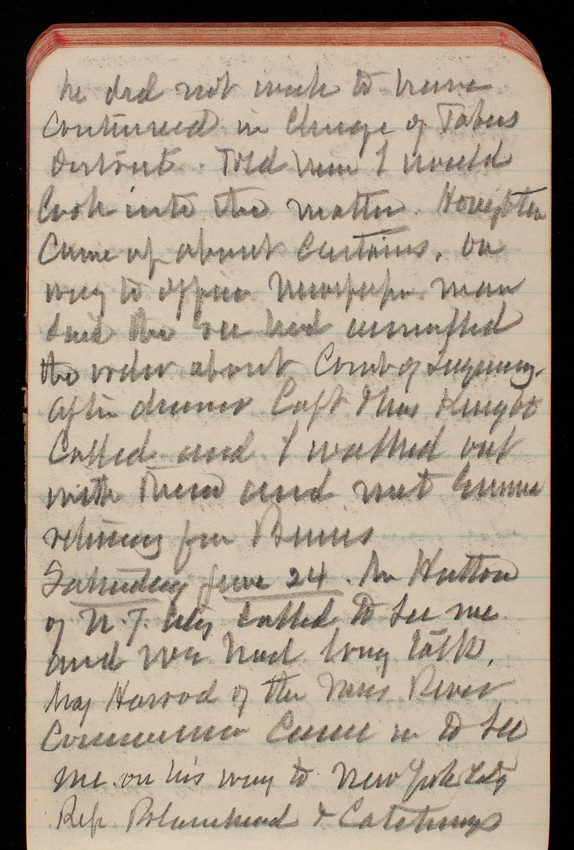 he did not wish to have
continued in Charge of Tabers
District. Told him I would
look into the matter. Houghton
Came up about Curtains. On
way to office Newspaper man
said the Sec had
the order about Court of Inquiry.
After dinner Capt Thos Knight
Called and I walked out
with them and met Emma
returning from Burns
Saturday June 24. Mr Hutton
of N.Y. City Called to see me
and we had long talk.
Maj Harrod of the Miss River
Commission Came in to see
me on his way to New York City
Rep Blanchard & Catchings